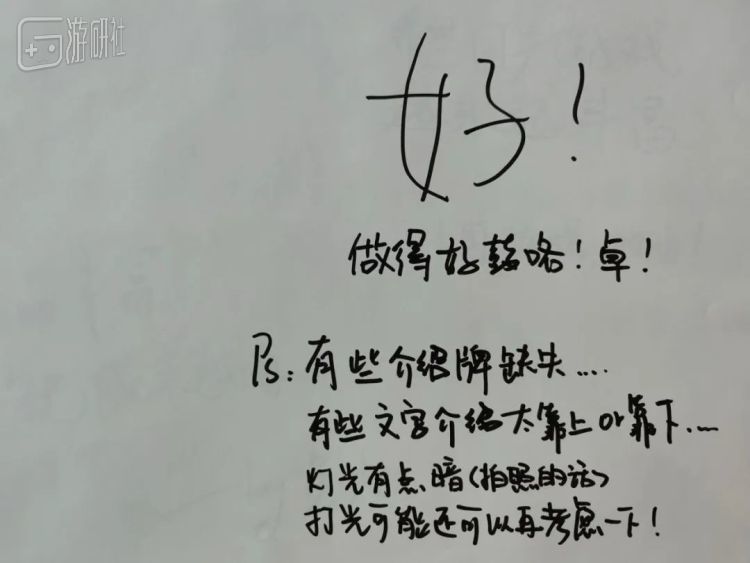 游研社
好！
做得好鼓咯！卓！
Ps：有些介绍牌缺失....
有些文字介绍太靠上or靠下....
灯光有点暗（拍照的话）
打光可能还可以再考虑一下！